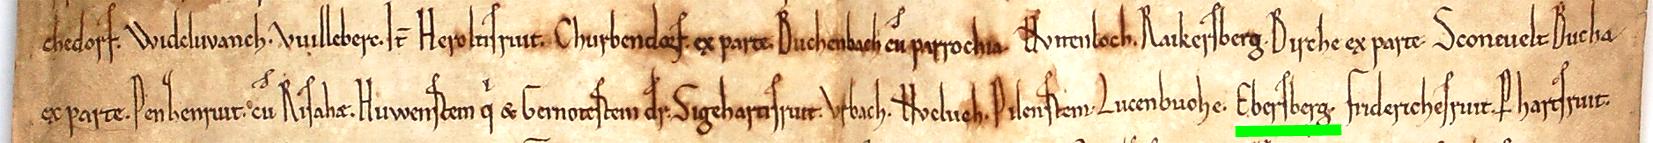 chedorf. Wideluvanch. Vuillebere. It̄ Heroltisruit. Churbendorf. ex parte. Buchenbach cū parrochia. Raikersberg. Dirche ex parte. Sconeuelt Bucha
ex parte. Penhenruit. cū Risahæ. Nuwenstein & Gernotestein dr̄. Sigehartisruit. Vrbach. Pilenstein. Lucenbuohe. Ebersberg. Friderichesruit. P hartsruit.